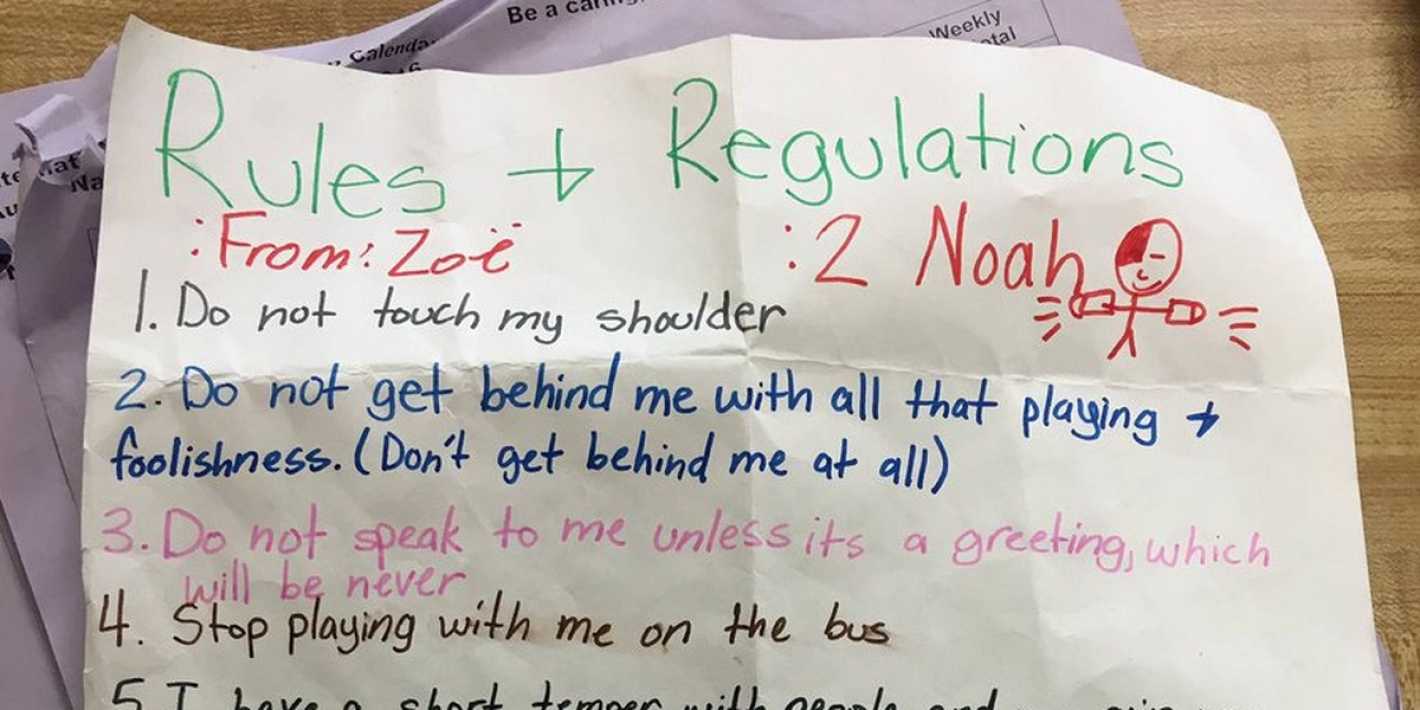 Be a
Weekly
Rules + Regulations
:From: Zoë :2 Noah
1. Do not touch my shoulder
2. Do not get behind me with all that playing +
foolishness. (Don't get behind me at all)
3. Do not speak to me unless its a greeting, which
will be never
4. Stop playing with me on the bus
5 I have a short temper with people and